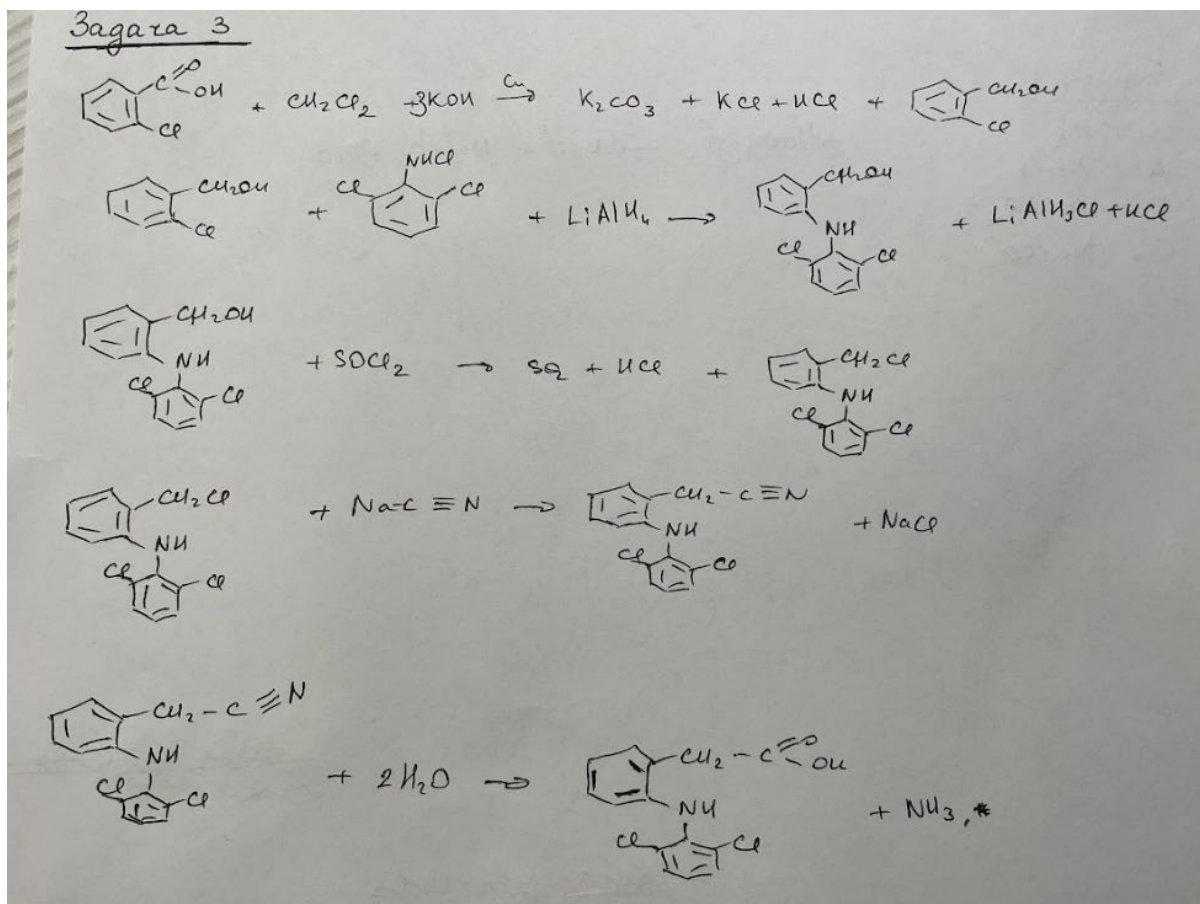 Задача 3
C=O OH Cl + CH2Cl2 + 3KOH Cu → K2CO3 + KCl + HCl + CH2OH Cl
CH2OH Cl + NHCl Cl Cl + LiAlH4 → CH2OH NH Cl Cl + LiAlH3Cl + HCl
CH2OH NH Cl Cl + SOCl2 → SO2 + HCl + CH2Cl NH Cl Cl
CH2Cl NH Cl Cl + Na-C≡N → CH2-C≡N NH Cl Cl + NaCl
CH2-C≡N NH Cl Cl + 2H2O → CH2-C=O OH NH Cl Cl + NH3,